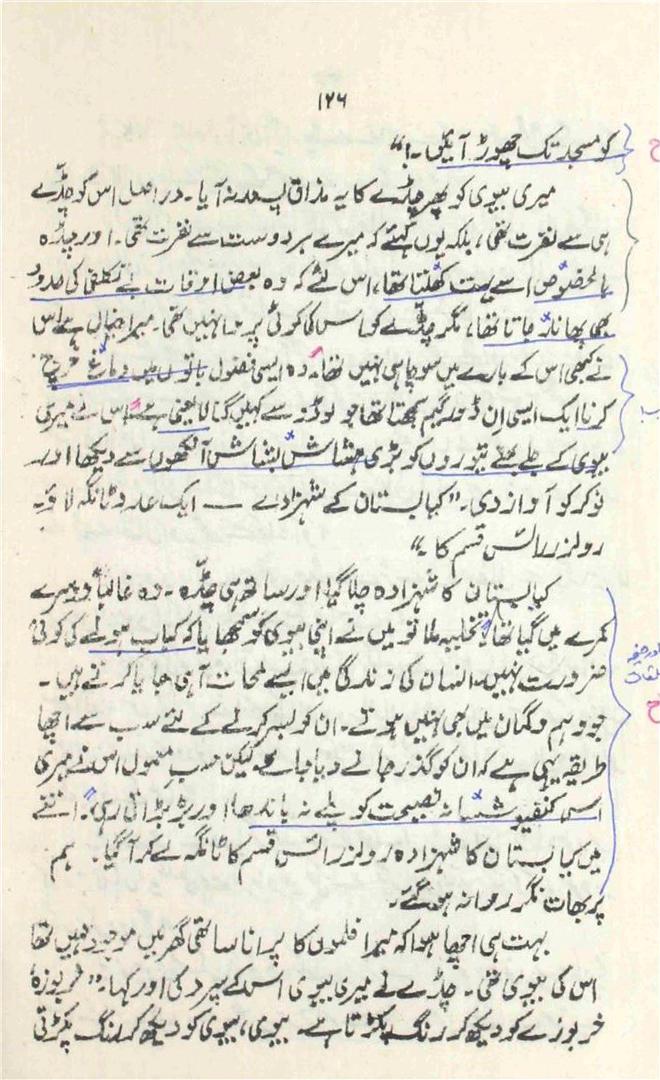 ۱۲۶
کو مسجد تک چھوڑ آئیں۔!"
میری بیوی کو پھر چڈے کا یہ مذاق پسند نہ آیا۔ دراصل اس کو چڈے
ہی سے نفرت تھی، بلکہ یوں کہئے کہ میرے ہر دوست سے نفرت تھی۔ اور چڈہ
بالخصوص اسے بہت کھلتا تھا، اس لئے کہ وہ بعض اوقات بے تکلفی کی حدود
بھی پھاند جاتا تھا، مگر چڈے کو اس کی کوئی پروا نہیں تھی۔ میرا خیال ہے اس
نے کبھی اس کے بارے میں سوچا ہی نہیں تھا۔ وہ ایسی فضول باتوں میں دماغ خرچ
کرنا ایک ایسی ان ڈور گیم سمجھتا تھا جو لوڈو سے کہیں گنا لایعنی ہے۔ اس نے میری
بیوی کے جلے بھنے تیوروں کو بڑی ہشاش بشاش آنکھوں سے دیکھا اور
نوکر کو آواز دی۔ "کبابستان کے شہزادے — ایک عدد ٹانگہ لاؤ۔
رولز رائس قسم کا۔"
کبابستان کا شہزادہ چلا گیا اور ساتھ ہی چڈہ۔ وہ غالباً دوسرے
کمرے میں گیا تھا، تخلیہ ملا تو میں نے اپنی بیوی کو سمجھایا کہ کباب ہونے کی کوئی
ضرورت نہیں۔ انسان کی زندگی میں ایسے لمحات آ ہی جایا کرتے ہیں۔
جو وہم و گمان میں بھی نہیں ہوتے۔ ان کو بسر کرنے کے لئے سب سے اچھا
طریقہ یہی ہے کہ ان کو گذر جانے دیا جائے۔ لیکن حسب معمول اس نے میری
اس کنفیوشسانہ نصیحت کو پلے نہ باندھا اور بڑبڑاتی رہی۔ اتنے
میں کبابستان کا شہزادہ رولز رائس قسم کا ٹانگہ لے کر آ گیا۔ ہم
پربھات نگر روانہ ہو گئے۔
بہت ہی اچھا ہوا کہ میرا فلموں کا پرانا ساتھی گھر میں موجود نہیں تھا
اس کی بیوی تھی۔ چڈے نے میری بیوی اس کے سپرد کی اور کہا۔ "خربوزہ
خربوزے کو دیکھ کر رنگ پکڑتا ہے۔ بیوی، بیوی کو دیکھ کر رنگ پکڑتی